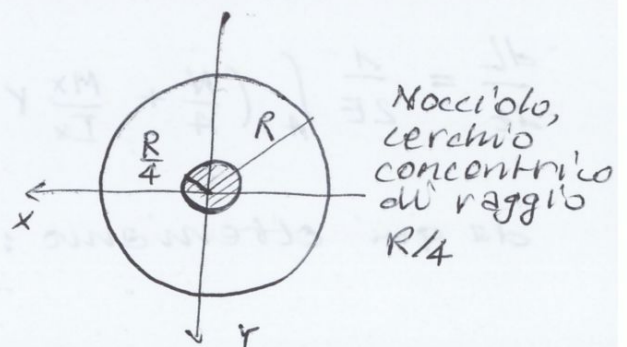 R
R/4
x
Y
Nocciolo,
cerchio
concentrico
di raggio
R/4